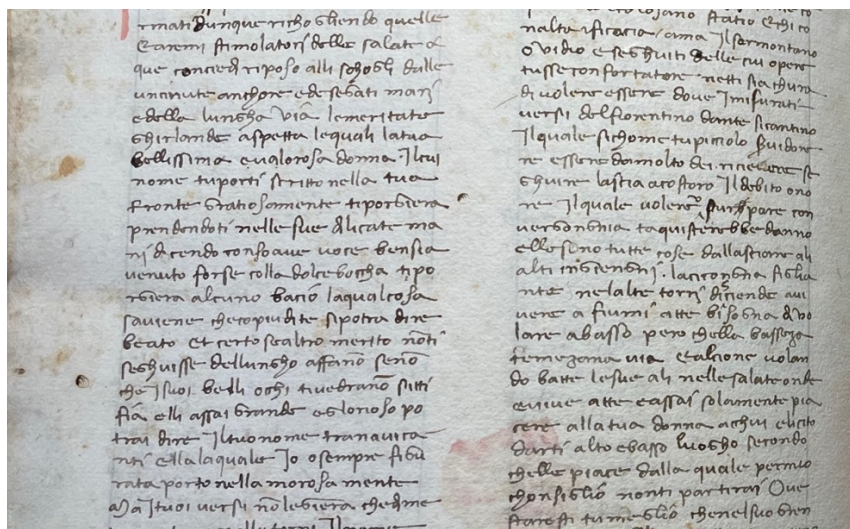 rmati dunque richogliendo quelle
Caremi stimolatori delle salate a
que concied riposo alli schogli dalle
uncinute anchore e desegati mari
e della lungha via lemeritate
ghirlande aspetta lequali latua
bellissima e ualorosa donna. Ilcui
nome tuporti scritto nella tua
fronte gratiosamente tiporgiera
prendendoti nelle sue dilicate ma
ni dicendo consoave voce bensia
venuto forse colla dolcebocha tipo
rgiera alcuno bacio laqualcosa
saviene checopiudite sipotra dire
beato et certo sealtro merito noti
seghuisse dellungho affano seno
che Isuoi belli ochi tivedrano sitti
fia elli assai grande e glorioso po
trai dire Iltuonome tranavica
nti ella laquale Io osempre figu
rata porto nella morosa mente
Ma Ituoi versi no legiera
statio
nalte ama Ilsermontano
Ovidio e seghuiti delle cui opere
tusse confortatore netti sia chura
di volere essere dove Imisurati
versi delfiorentino dante sicantino
Ilquale sichome tupiccolo servidore
re essere damolto dei ricievere se
ghuire lascia acostoro Ildebito ono
re Ilquale volere furar pare con
verghongnia taquisterebbe danno
elle sono tutte cose dallasciare ali
alti ingiengni. lacicongna figlia
nte nelalte torri diciende avi
vere a fiumi atte bisogna di vo
lare abasso pero chella bassezza
teme via Calcione volan
do batte lesue ali nelle salate onde
e vive atte e assai solamente pia
cere alla tua donna achui elicito
darti alto e basso luogho secondo
chelle piace dalla quale permio
chonsiglio nonti partirai Ove
starossi tu meglio chenelsuo gren